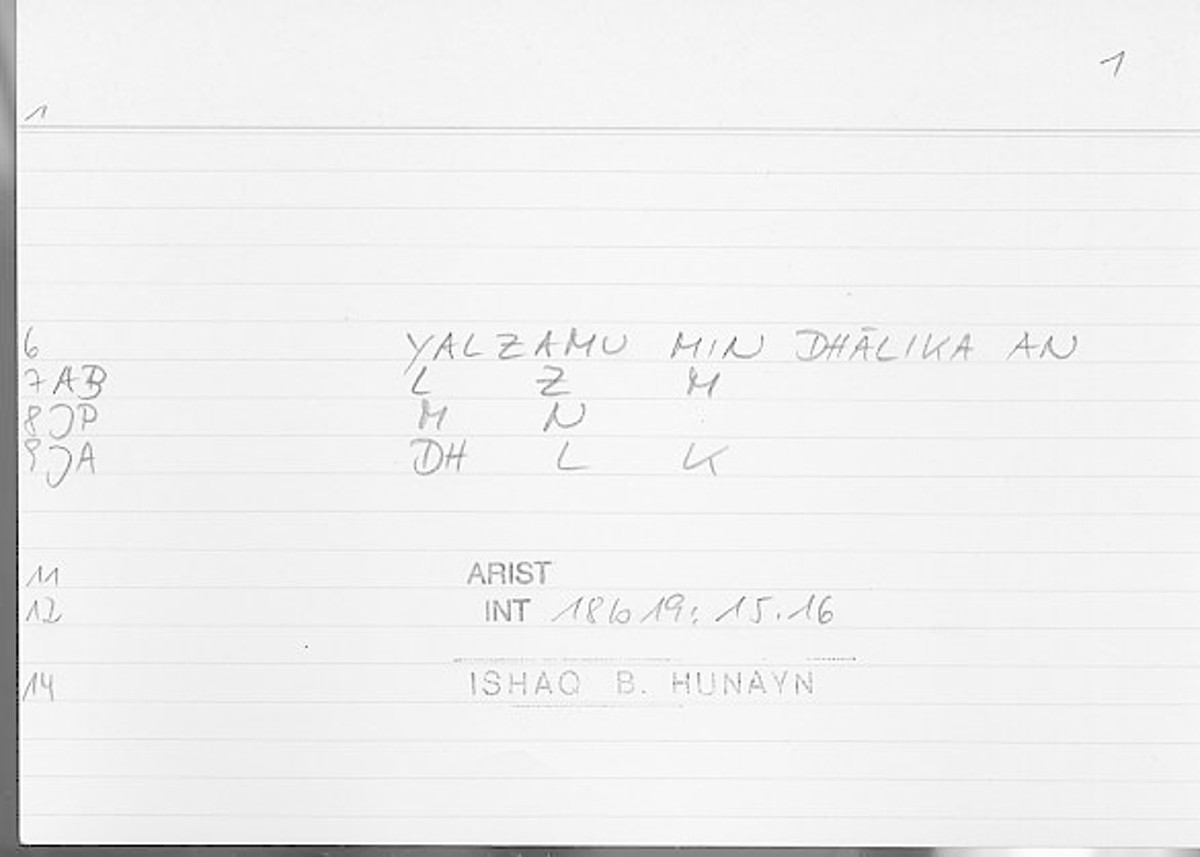 1
1
6 YALZAMU MIN DHĀLIKA AN
7 AB L Z M
8 JP M N
9 JA DH L K
11 ARIST
12 INT 18b19; 15.16
14 ISHAQ B. HUNAYN